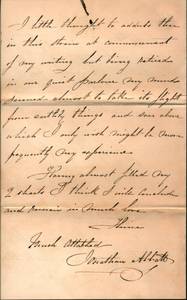 I little thought to address thee
in this strain at commencement
of my writing but being retired
in our quiet parlour my mind
seemed almost to take its flight
from earthly things and soar above
which I only wish might be more
frequently my experience.
Having almost filled my
2 sheets I think I will conclude
and remain in much love
Thine
Much attached
Jonathan Abbatt